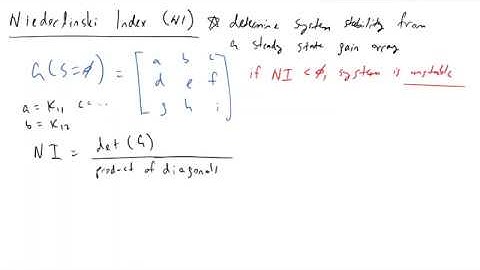 Niederlinski Index (NI) * determine system stability from
a steady state gain array
if NI < 0, system is unstable
G(s=0) = [a b c
d e f
g h i]
a = K11 c = ...
b = K12
NI = det(G)
product of diagonals